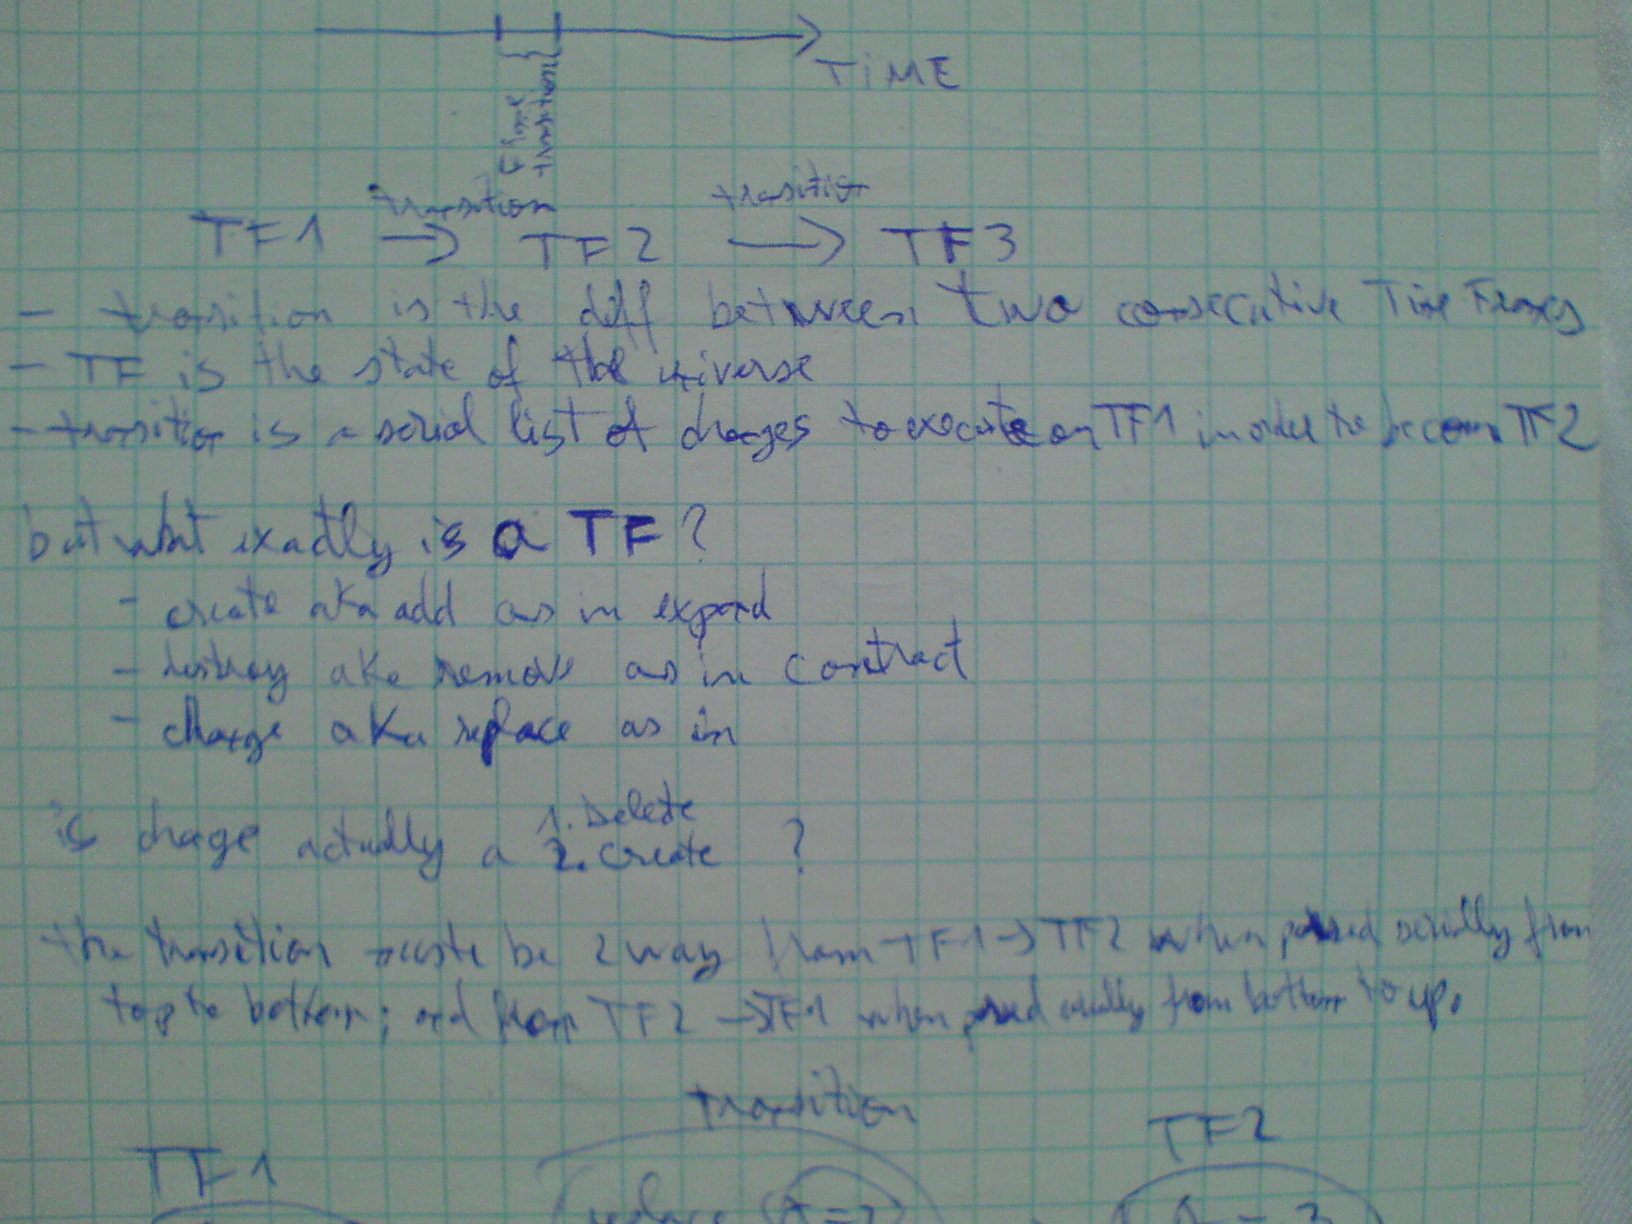 TiME
transition
transition transition
TF1 → TF2 → TF3
- transition is the diff between two consecutive Time Frames
- TF is the state of the universe
- transition is a serial list of changes to execute on TF1 in order to become TF2
but what exactly is a TF?
- create aka add as in expand
- destroy aka remove as in contract
- change aka replace as in
is change actually a 1. Delete
2. create ?
the transition be 2 way from TF1 → TF2 when parsed serially from
top to bottom; and from TF2 → TF1 when parsed serially from bottom to up.
transition
TF1 TF2
replace A=2 A = 3